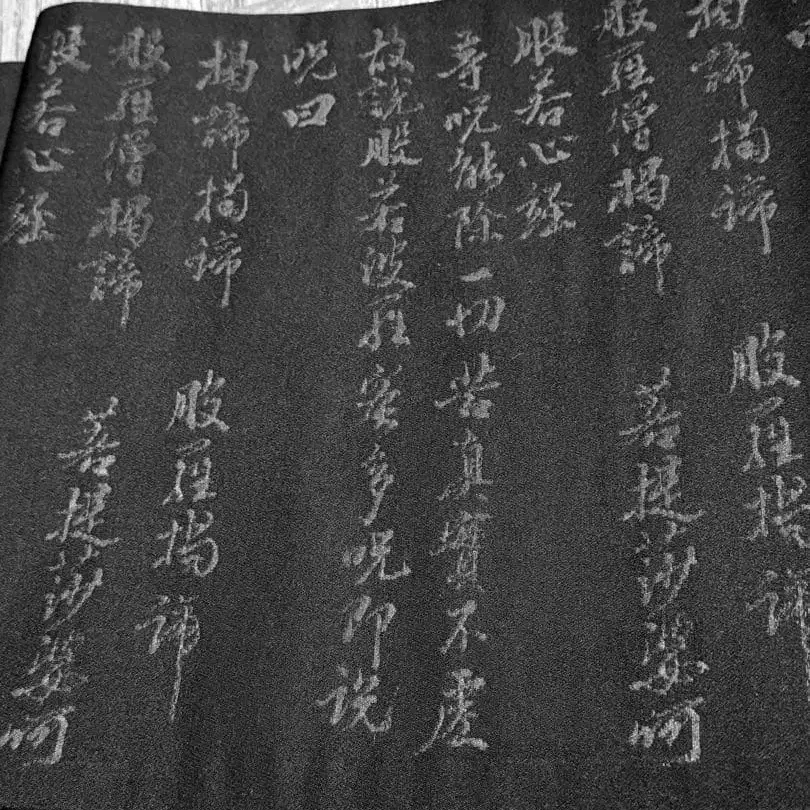 揭諦揭諦 般羅揭諦
般羅僧揭諦 菩提莎婆呵
般若心経
等呪能除一切苦真實不虚
故説般若波羅蜜多呪即説
呪曰
揭諦揭諦 般羅揭諦
般羅僧揭諦 菩提莎婆呵
般若心経